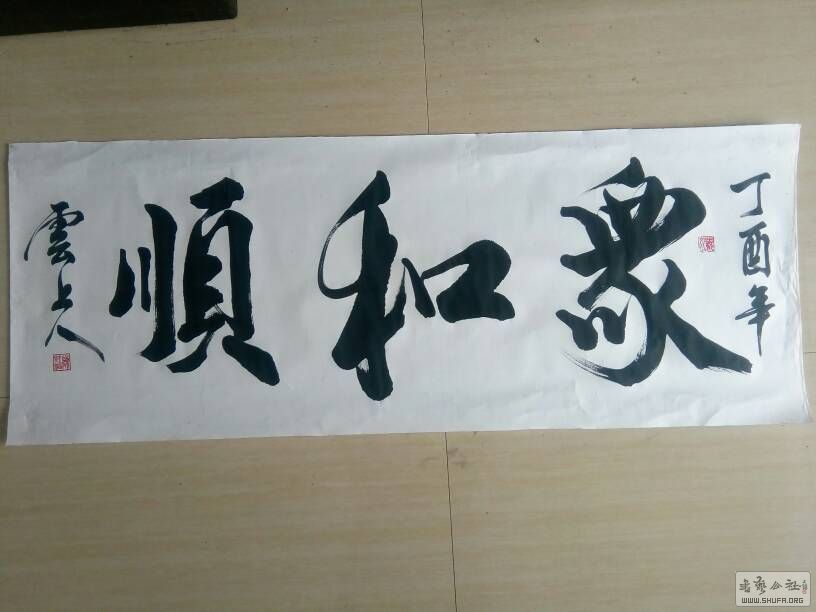 丁酉年
眾和順
雲上人
書藝公社
WWW.SHUFA.ORG